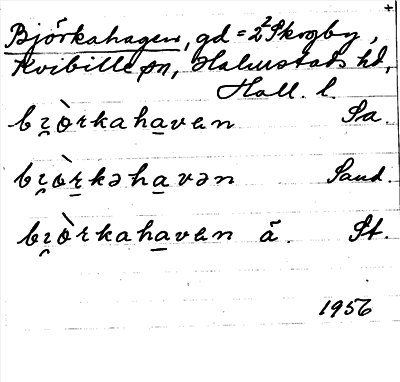 +
Björkahagen, gd = 2² Skogby,
Kvibille sn, Halmstads hd,
Hall. l.
bi̯ òrkahavan Sa.
bi̯ òrkəhavən Sand.
bi̯ òrkahavan ä. St.
1956